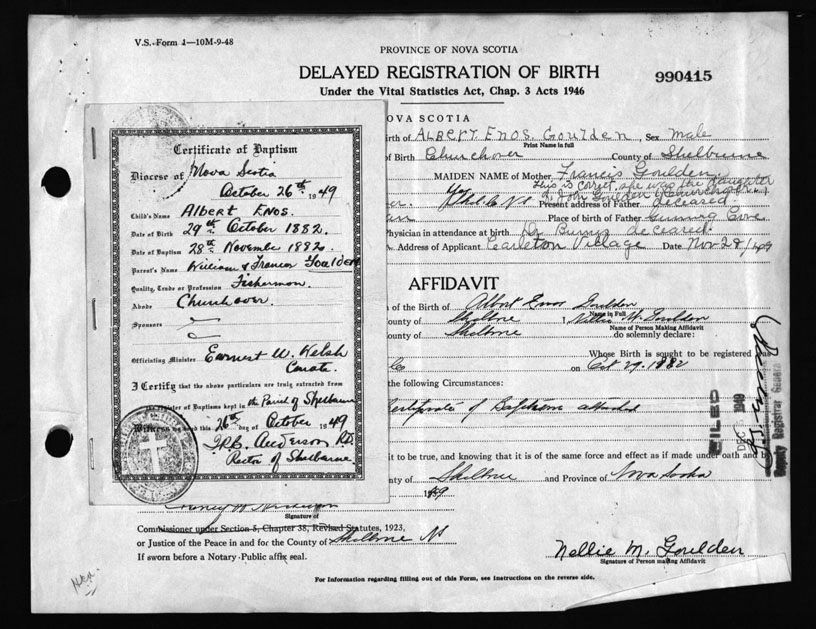 V.S. Form 1—10M-9-48
PROVINCE OF NOVA SCOTIA
DELAYED REGISTRATION OF BIRTH
990415
Under the Vital Statistics Act, Chap. 3 Acts 1946
Certificate of Baptism
Diocese of Nova Scotia
October 26th 1949
Child's Name Albert Enos.
Date of Birth 29th October 1882.
Date of Baptism 28th November 1882.
Parent's Name William & Frances Goulden
Quality, Trade or Profession Fisherman.
Abode Churchover
Sponsors
Officiating Minister Earnest W. Kelsh
Curate.
I Certify that the above particulars are truly extracted from
the register of Baptisms kept in the Parish of Shelburne
Witness my hand this 26th day of October 1949
Anderson
Rector of Shelburne
NOVA SCOTIA
Birth of ALBERT ENOS. Goulden, Sex male
Print Name in full
of Birth Churchover County of Shelburne
MAIDEN NAME of Mother Francis Goulden
This is correct, she was the daughter
of John Goulden (Churchover)
Present address of Father deceased
Place of birth of Father Gunning Cove
Physician in attendance at birth Dr Burns deceased.
Address of Applicant Carleton Village Date Nov 28/49
AFFIDAVIT
n of the Birth of Albert Enos Goulden
Name in Full
ounty of Shelburne I Nellie M. Goulden
Name of Person Making Affidavit
ounty of Shelburne do solemnly declare:
Whose Birth is sought to be registered was
Co on Oct 29. 1882
the following Circumstances:
Certificate of Baptism attached
it to be true, and knowing that it is of the same force and effect as if made under oath and
nty of Shelburne and Province of Nova Scotia
1949
FILED
DEC 1949
Deputy Registrar General
Signature of
Commissioner under Section 5, Chapter 38, Revised Statutes, 1923,
or Justice of the Peace in and for the County of Shelburne NS
If sworn before a Notary Public affix seal.
Nellie M. Goulden
Signature of Person making Affidavit
For Information regarding filling out of this Form, see Instructions on the reverse side.